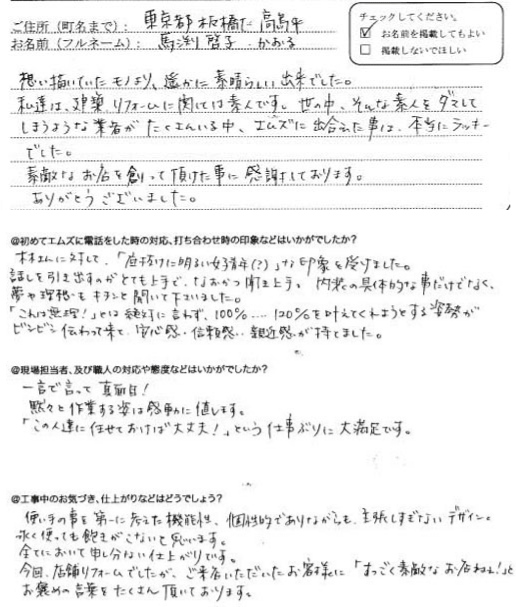 ご住所（町名まで）： 東京都板橋区高島平
お名前（フルネーム）： 馬渕啓子・かおる
チェックしてください。
☑ お名前を掲載してもよい
□ 掲載しないでほしい
想い描いていたモノより、遥かに素晴らしい出来でした。
私達は、建築、リフォームに関しては素人です。世の中、そんな素人をダマして
しまうような業者がたくさんいる中、エムズに出会えた事は、本当にラッキー
でした。
素敵なお店を創って頂けた事に感謝しております。
ありがとうございました。
@初めてエムズに電話をした時の対応、打ち合わせ時の印象などはいかがでしたか？
木村さんに対して、「底抜けに明るい好青年(?)」な印象を受けました。
話しを引き出すのがとても上手で、なおかつ聞き上手。内装の具体的な事だけでなく、
夢や理想もキチンと聞いて下さいました。
「これは無理！」とは絶対に言わず、100%…120%を叶えてくれようとする姿勢が
ビンビン伝わって来て、安心感・信頼感・親近感が持てました。
@現場担当者、及び職人の対応や態度などはいかがでしたか？
一言で言って真面目！
黙々と作業する姿は感動に値します。
「この人達に任せておけば大丈夫！」という仕事ぶりに大満足です。
@工事中のお気づき、仕上がりなどはどうでしょう？
使い手の事を第一に考えた機能性、個性的でありながらも、主張しすぎないデザイン。
永く使っても飽きがこないと思います。
全てにおいて申し分ない仕上がりです。
今回、店舗リフォームでしたが、ご来店いただいたお客様に「すっごく素敵なお店ねぇ！」と
お褒めの言葉をたくさん頂いております。